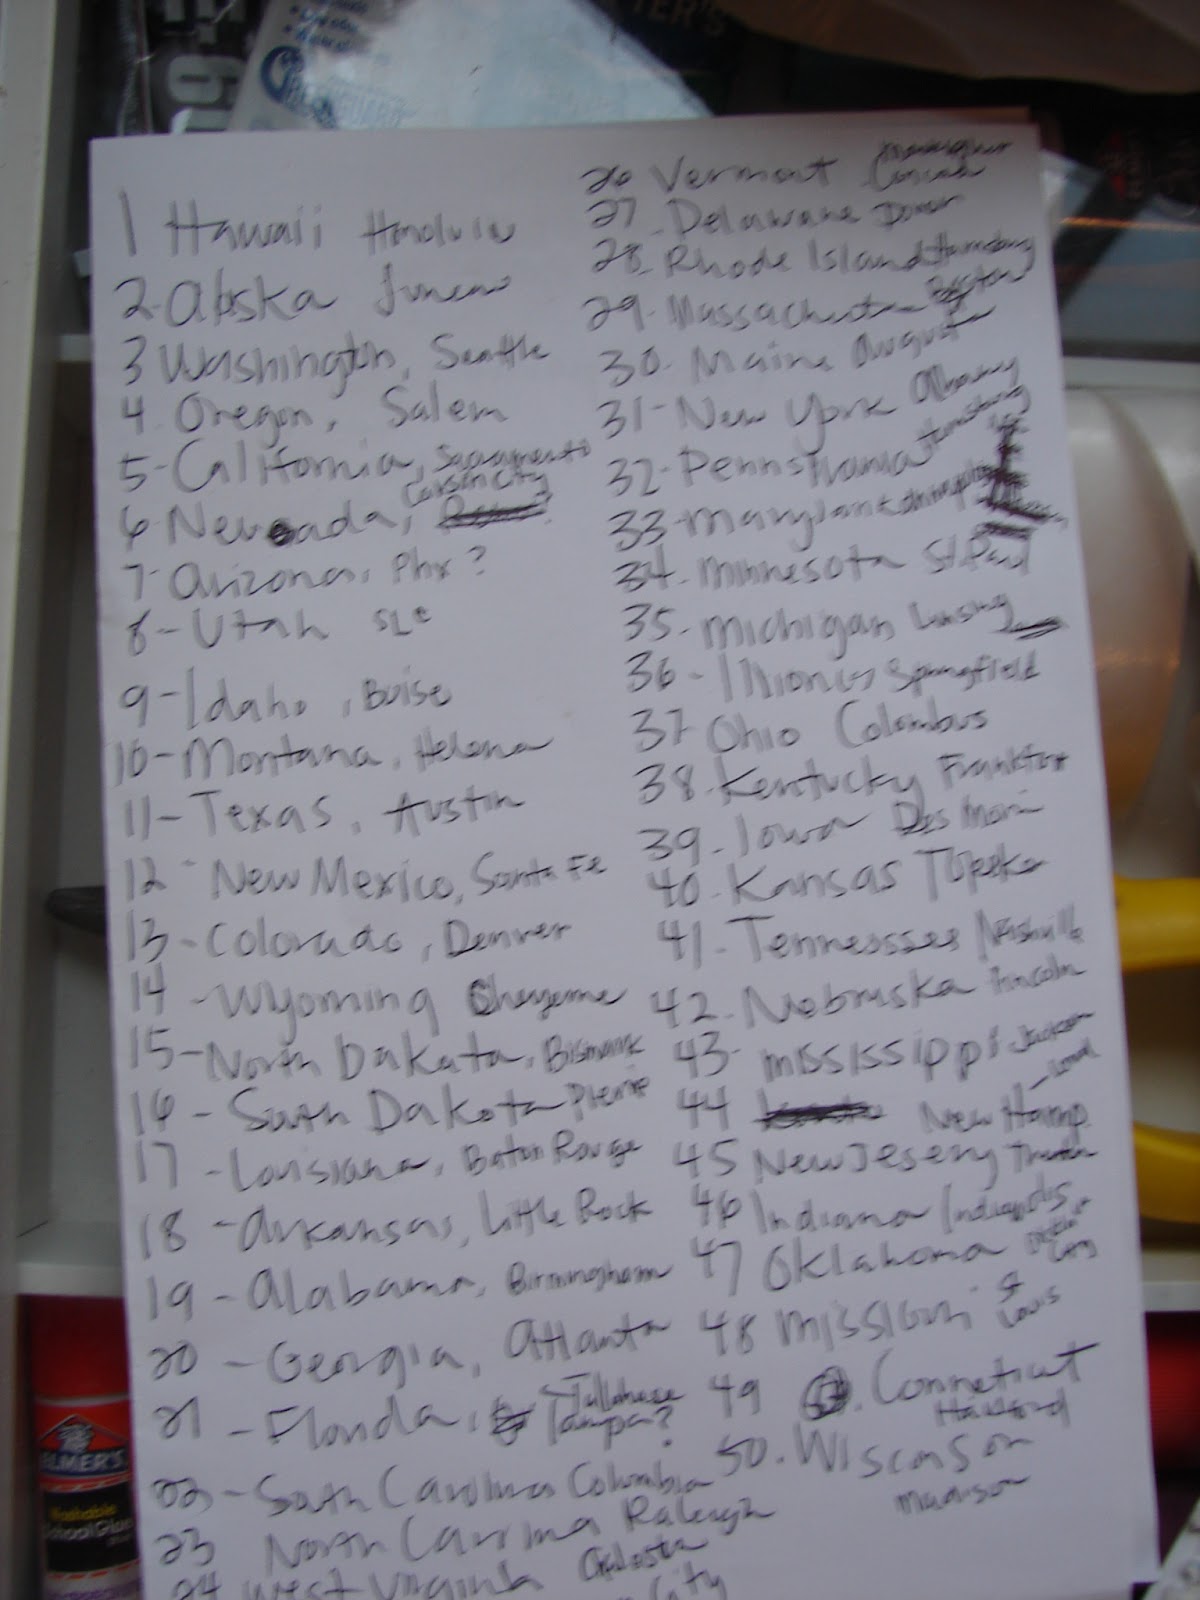 1 Hawaii Honolulu
2-Alaska Juneau
3 Washington, Seattle
4. Oregon, Salem
5-California, Sacramento
6 Nevada, Carson City
7- Arizona, Phx?
8-Utah SLC
9-Idaho, Boise
10-Montana, Helena
11-Texas, Austin
12-New Mexico, Santa Fe
13-Colorado, Denver
14-Wyoming Cheyenne
15-North Dakata, Bismark
16-South Dakota Pierre
17-Louisiana, Baton Rouge
18-Arkansas, Little Rock
19-Alabama, Birmingham
20-Georgia, Atlanta
21-Florida, Tallahasse
Tampa?
22-South Carolina Columbia
23 North Carolina Raleigh
24 West Virginia
City
26 Vermont
27-Delaware Dover
28-Rhode Island Harrisburg
29-Massachusetts Boston
30-Maine Augusta
31-New York Albany
32-Pennslvania Harrisburg
33-Maryland
34-Minnesota St. Paul
35-Michigan Lansing
36-Illionis Springfield
37 Ohio Colombus
38-Kentucky Frankfort
39-Iowa Des Moin
40-Kansas Topeka
41-Tennesssee Nashville
42-Nebraska Lincoln
43-Mississippi Jackson
44 New Hamp.
45 New Jesery
46 Indiana Indianapolis
47 Oklahoma City
48 Missiouri St Louis
49 Conneticut
Hartford
50. Wisconson
Madison
ELMER'S
Washable
School Glue